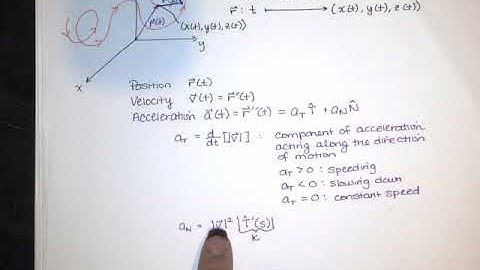 r⃗ : t ⟶ (x(t), y(t), z(t))
r⃗(t)
(x(t), y(t), z(t))
y
x
Position r⃗(t)
Velocity v⃗(t) = r⃗'(t)
Acceleration a⃗(t) = r⃗''(t) = a_T T̂ + a_N N̂
a_T = d/dt [|v⃗|] : component of acceleration
acting along the direction
of motion
a_T > 0 : speeding
a_T < 0 : slowing down
a_T = 0 : constant speed
a_N = |v⃗|² |T̂'(s)|
K